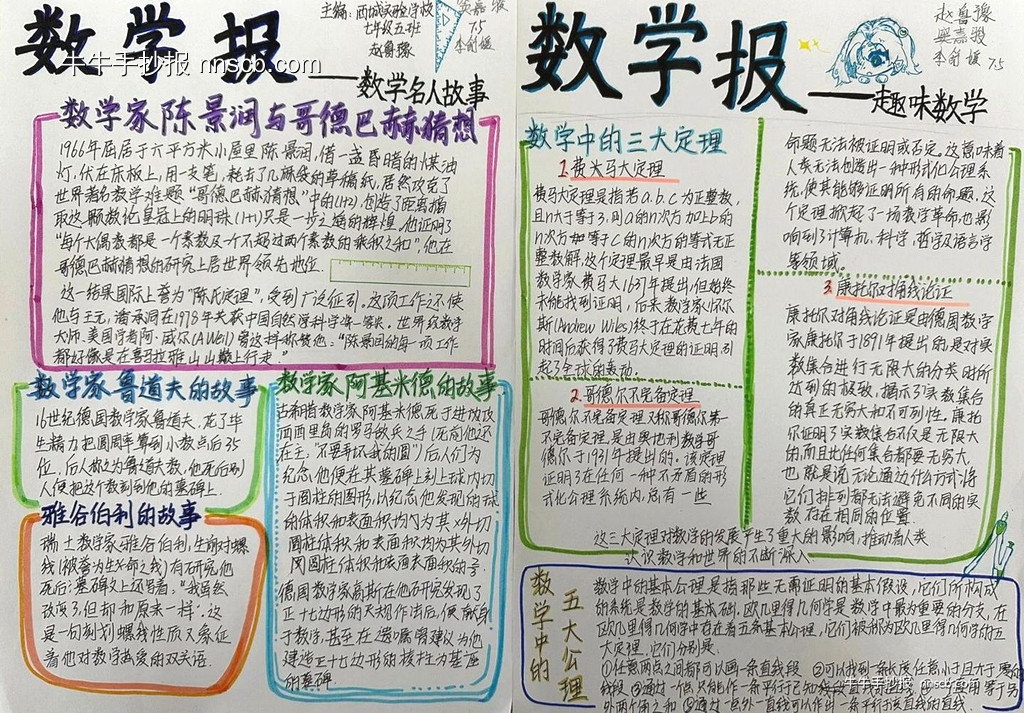 数学报
主编：西城实验学校
七年级五班
赵鲁豫
75
牛牛手抄报 nnscb.com
——数学名人故事
数学家陈景润与哥德巴赫猜想
1966年屈居于六平方米小屋里陈景润，借一盏昏暗的煤油
灯，伏在床板上，用一支笔，耗去了几麻袋的草稿纸，居然攻克了
世界著名数学难题“哥德巴赫猜想”中的(1+2)，创造了距离摘
取这颗数论皇冠上的明珠(1+1)只是一步之遥的辉煌。他证明了
“每个大偶数都是一个素数及一个不超过两个素数的乘积之和”，他在
哥德巴赫猜想的研究上居世界领先地位.
这一结果国际上誉为“陈氏定理”，受到广泛征引，这项工作还使
他与王元，潘承洞在1978年共获中国自然科学奖一等奖.世界级数学
大师.美国学者阿.威尔(A Weil)曾这样称赞他：“陈景润的每一项工作
都好像是在喜马拉雅山山巅上行走.”
数学家鲁道夫的故事
16世纪德国数学家鲁道夫，花了毕
生精力把圆周率算到小数点后35
位，后人称之为鲁道夫数，他死后别
人便把这个数刻到他的墓碑上.
雅谷伯利的故事
瑞士数学家雅谷伯利，生前对螺
线(被誉为生命之线)有研究他
死后，墓碑上还写着：“我虽然
改变了但却和原来一样”.这
是一句刻划螺线性质又象征
着他对数学热爱的双关语.
数学家阿基米德的故事
古希腊数学家阿基米德死于进攻攻
西西里岛的罗马敌兵之手(死前他还
在主，“不要弄坏我的圆”)后人们为
纪念他便在其墓碑上刻上球内切
于圆柱的图形，以纪念他发现的球
的体积和表面积均为其外切
圆柱体积和表面积均为其外切
圆柱体积和表面积的
德国数学家高斯在他研究发现了
正十七边形的尺规作法后，便献身
于数学，甚至在遗嘱里建议为他
建造正十七边形的棱柱为基座
的墓碑
数学报
赵鲁豫
75
——趣味数学
数学中的三大定理
1.费大马大定理
费马大定理是指若a.b.c为正整数，
且n大于等于3.则a的n次方加上b的
n次方如等于c的n次方的等式无正
整数解.这个定理最早是由法国
数学家费马大1637年提出，但始终
未能找到证明，后来数学家怀尔
斯(Andrew Wiles)终于在花费七年的
时间后获得了费马大定理的证明.引
起了全球的轰动.
2.哥德尔不完备定理
哥德尔不完备定理又称哥德尔第一
不完备定理，是由奥地利数学哥
德尔于1931年提出的.该定理
证明了在任何一种不矛盾的形
式化公理系统内，总有一些
命题无法被证明或否定.这意味着
人类无法创造出一种形式化公理系
统，使其能够证明所有的命题.这
个定理掀起了一场数学革命也影
响到了计算机、科学，哲学及语言学
等领域.
3.康托尔对角线论证
康托尔对角线论证是由德国数学
家康托尔于1891年提出的是对实
数集合进行无限大的分类时所
达到的极致，揭示了实数集合
的真正无穷大和不可列性.康托
尔证明了实数集合不仅是无限大
的，而且比任何集合都要无穷大.
也就是说无论通过什么方式将
它们排列都无法避免不同的实
数存在相同的位置
这三大定理对数学的发展产生了重大的影响，推动着人类
认识数学和世界的不断深入
数学中的
五大公理
数学中的基本公理是指那些无需证明的基本假设，它们所构成
的系统是数学的基本础.欧几里得几何学是数学中最为重要的分支，在
欧几里得几何学中存在着五条基本公理，它们被称为欧几里得几何学的五
大定理，它们分别是：
①任意两点之间都可以画一条直线段 ②可以找到一条长度任意小于且大于零的
线段 ③通过一点只能作一条平行于已知
外两个角之和 ⑤通过一点外一直线可以作出一条平行于该直线的直线.
牛牛手抄报 nnscb.com